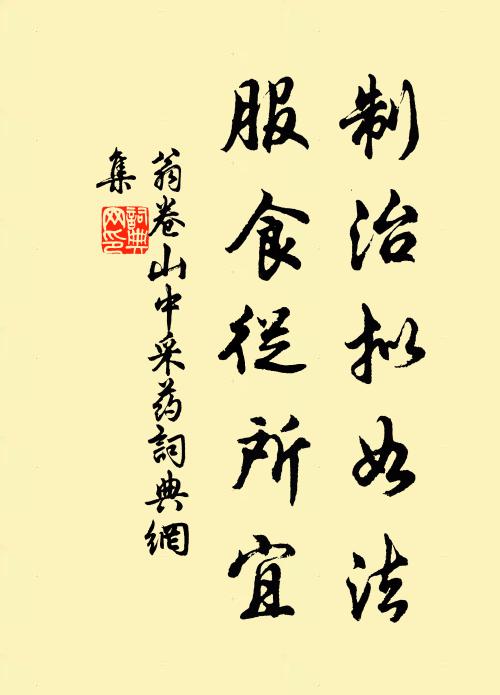 制治拟如法
服食從所宜
翁卷山中采药詞典網
集
詞典
网印